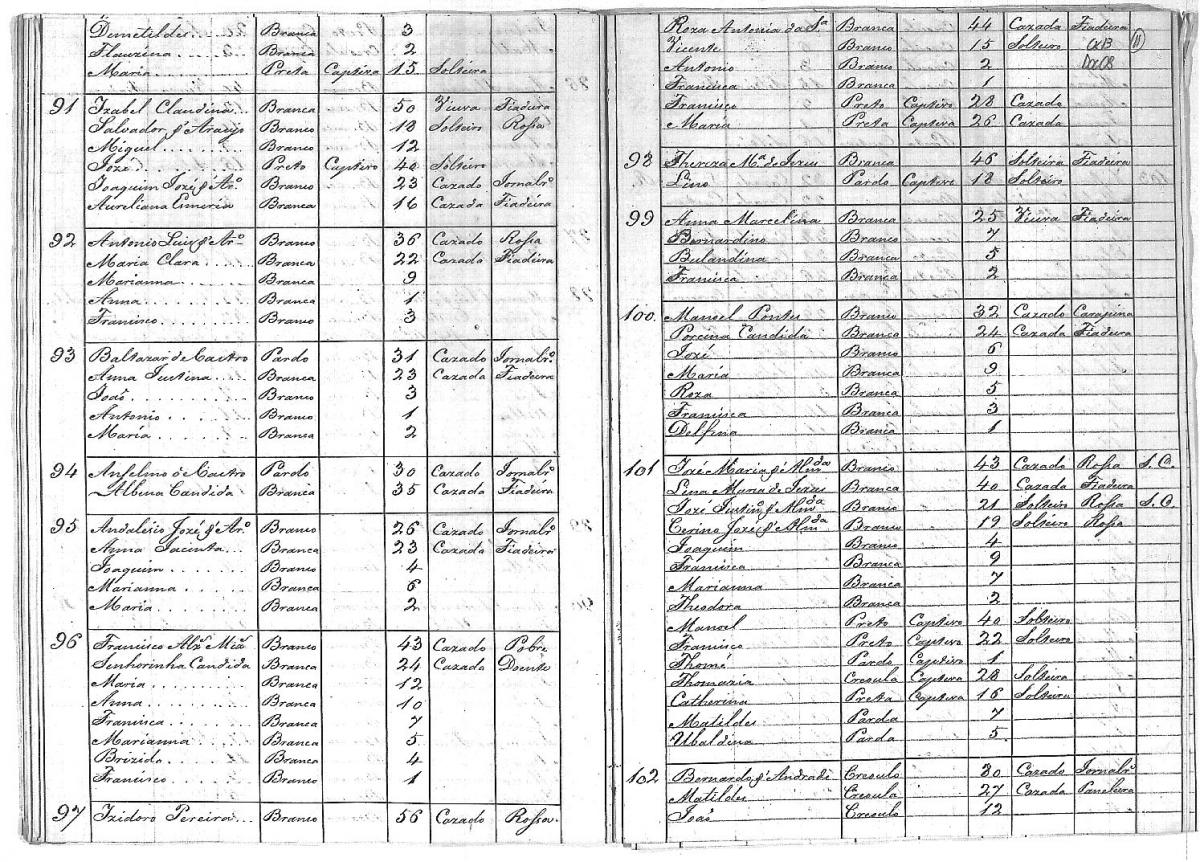 Demetildes Branca 3
Flauzina Branca 2
Maria Preta Captiva 15 Solteira
91 Izabel Claudina Branca 50 Viuva Fiadeira
Salvador d'Araujo Branco 18 Solteiro Rossa
Miguel Branco 12
Jozé Preto Captivo 40 Solteiro
Joaquim Jozé d'Arº Branco 23 Cazado Jornalrº
Aureliana Emeria Branca 16 Cazada Fiadeira
92 Antonio Luis d'Arº Branco 36 Cazado Rossa
Maria Clara Branca 22 Cazada Fiadeira
Marianna Branca 9
Anna Branca 1
Francisco Branco 3
93 Baltazar de Castro Pardo 31 Cazado Jornalrº
Anna Justina Branca 23 Cazada Fiadeira
João Branco 3
Antonio Branco 1
Maria Branca 2
94 Anselmo de Castro Pardo 30 Cazado Jornalrº
Albina Candida Branca 35 Cazada Fiadeira
95 Jozé d'Arº Branco 26 Cazado Jornalrº
Anna Jacinta Branca 23 Cazada Fiadeira
Joaquim Branco 4
Marianna Branca 6
Maria Branca 2
96 Francisco Branco 43 Cazado Pobre
Senhorinha Candida Branca 24 Cazada Doente
Maria Branca 12
Anna Branca 10
Francisca Branca 7
Marianna Branca 5
Brizida Branca 4
Francisco Branco 1
97 Izidoro Pereira Branco 56 Cazado Rossa
Roza Antonia da Sª Branca 44 Cazada Fiadeira
Vicente Branco 15 Solteiro 11
Antonio Branco 2
Francisca Branca 1
Francisco Preto Captivo 28 Cazado
Maria Preta Captiva 26 Cazada
98 Thereza Mª de Jezus Branca 46 Solteira Fiadeira
Lino Pardo Captivo 18 Solteiro
99 Anna Marcelina Branca 25 Viuva Fiadeira
Bernardino Branco 7
Bulandina Branca 5
Francisca Branca 2
100 Manoel Pontes Branco 32 Cazado Carapina
Porcina Candida Branca 24 Cazada Fiadeira
Jozé Branco 6
Maria Branca 9
Roza Branca 5
Francisca Branca 3
Delfina Branca 1
101 Jozé Maria d'Almda Branco 43 Cazado Rossa
Lina Maria de Jezus Branca 40 Cazada Fiadeira
Jozé Justinº d'Almda Branco 21 Solteiro Rossa
Cerino Jozé d'Almda Branco 19 Solteiro Rossa
Joaquim Branco 4
Francisca Branca 9
Marianna Branca 7
Theodora Branca 2
Manoel Preto Captivo 40 Solteiro
Francisco Preto Captivo 22 Solteiro
Thomé Pardo Captivo 1
Thomazia Creoula Captiva 28 Solteira
Catherina Preta Captiva 16 Solteira
Matildes Parda 7
Ubaldina Parda 5
102 Bernardo d'Andrade Creoulo 30 Cazado Jornalrº
Matildes Creoula 27 Cazada Paneleira
João Creoulo 12